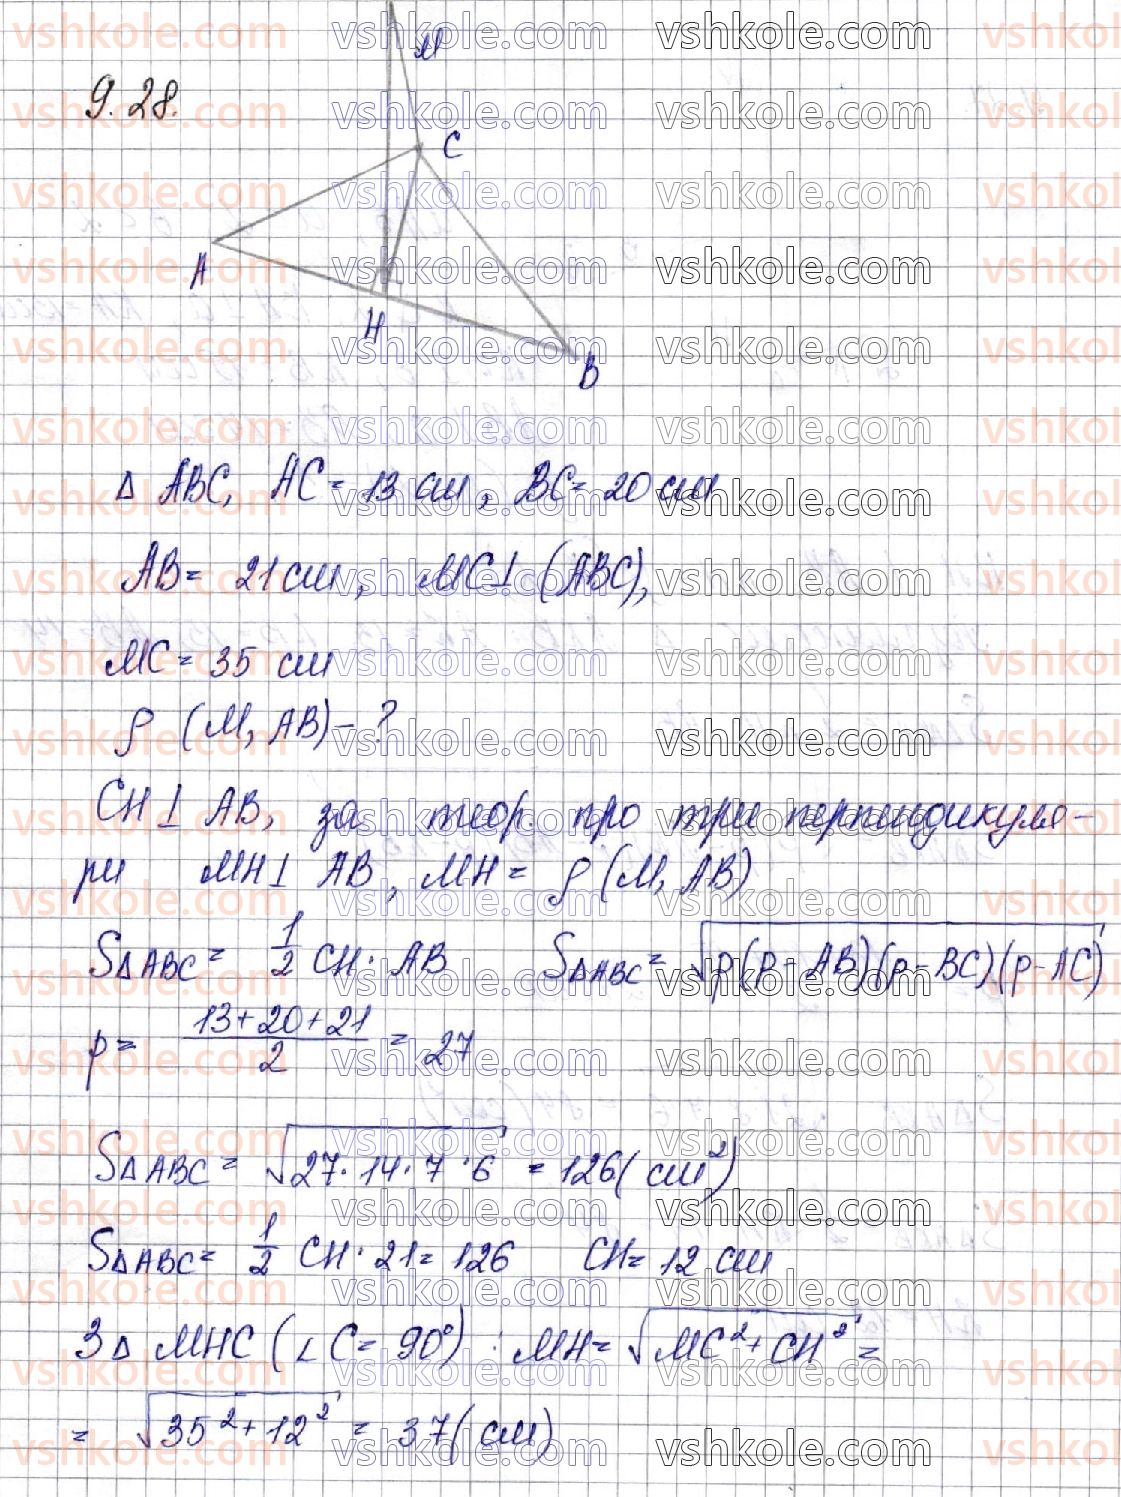 9.28.
M
C
A
H
B
Δ ABC, AC = 13 см, BC = 20 см
AB = 21 см, MC⊥ (ABC),
MC = 35 см
ρ (M, AB) - ?
CH⊥ AB, за теор. про три перпендикуля-
ри MH⊥ AB, MH = ρ (M, AB)
SΔABC = 1/2 CH · AB SΔABC = √p(p - AB)(p - BC)(p - AC)
p = (13+20+21)/2 = 27
SΔABC = √27 · 14 · 7 · 6 = 126 (см²)
SΔABC = 1/2 CH · 21 = 126 CH = 12 см
З Δ MHC (∠C = 90°) : MH = √MC² + CH² =
= √35² + 12² = 37 (см)